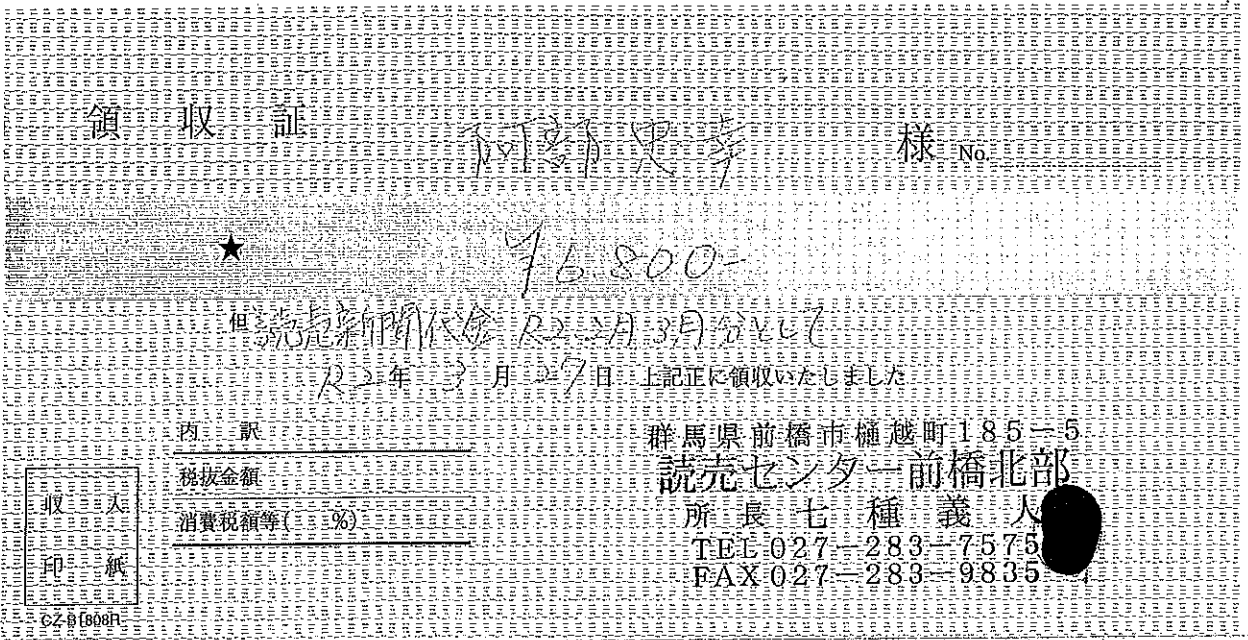 領 収 証 阿部忠幸 様 No.
★ ¥6,800-
但 読売新聞代金 R2.2月3月分として
R2年 3月 27日 上記正に領収いたしました
内 訳
税抜金額
消費税額等( %)
収 入
印 紙
群馬県前橋市樋越町185-5
読売センター前橋北部
所 長 七 種 義 人
TEL 027-283-7575
FAX 027-283-9835